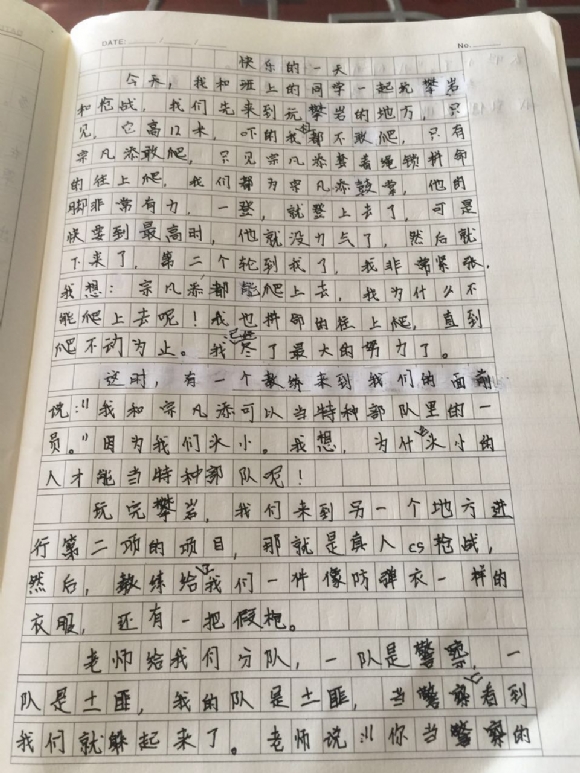 DATE: / /
No.
快乐的一天
今天，我和班上的同学一起玩攀岩
和枪战，我们先来到玩攀岩的地方，只
见，它高12米，吓的我都不敢爬，只有
宗凡添敢爬，只见宗凡添靠着绳锁拼命
的往上爬，我们都为宗凡添鼓掌，他的
脚非常有力，一登，就登上去了，可是
快要到最高时，他就没力气了，然后就
下来了，第二个轮到我了，我非常紧张，
我想：宗凡添都能爬上去，我为什么不
能爬上去呢！我也拼命的往上爬，直到
爬不动为止。我已经尽了最大的努力了。
这时，有一个教练来到我们的面前
说：“我和宗凡添可以当特种部队里的一
员。”因为我们头小。我想，为什么头小的
人才能当特种部队呢！
玩完攀岩，我们来到另一个地方进
行第二项的项目，那就是真人cs枪战，
然后，教练给我们一件像防弹衣一样的
衣服，还有一把假枪。
老师给我们分队，一队是警察，一
队是土匪，我的队是土匪，当警察看到
我们就躲起来了。老师说：“你当警察的